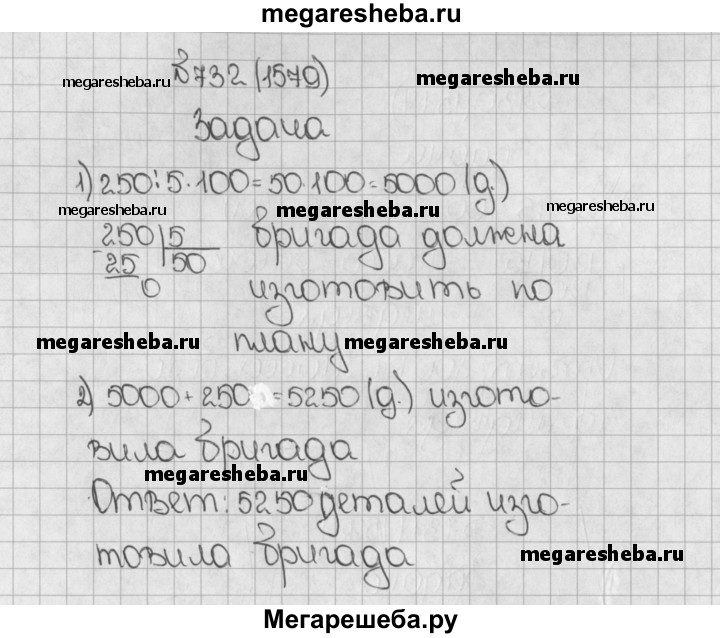 megaresheba.ru
№732 (1579)
megaresheba.ru megaresheba.ru
Задача
1) 250:5·100=50·100=5000 (д.)
megaresheba.ru megaresheba.ru megaresheba.ru
-250|5 бригада должна
25 50
0 изготовить по
megaresheba.ru плану megaresheba.ru
2) 5000+250=5250 (д.) изгото-
вила бригада
megaresheba.ru
Ответ: 5250 деталей изго-
товила бригада megaresheba.ru
Мегарешеба.ру